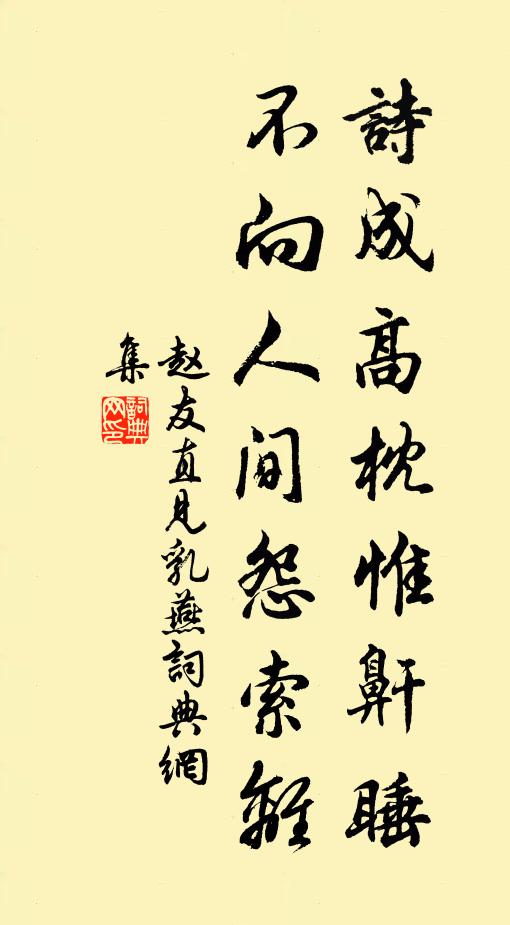 詩成高枕惟鼾睡
不向人間怨索離
赵友直見乳燕詞典網
集
詞典
网印